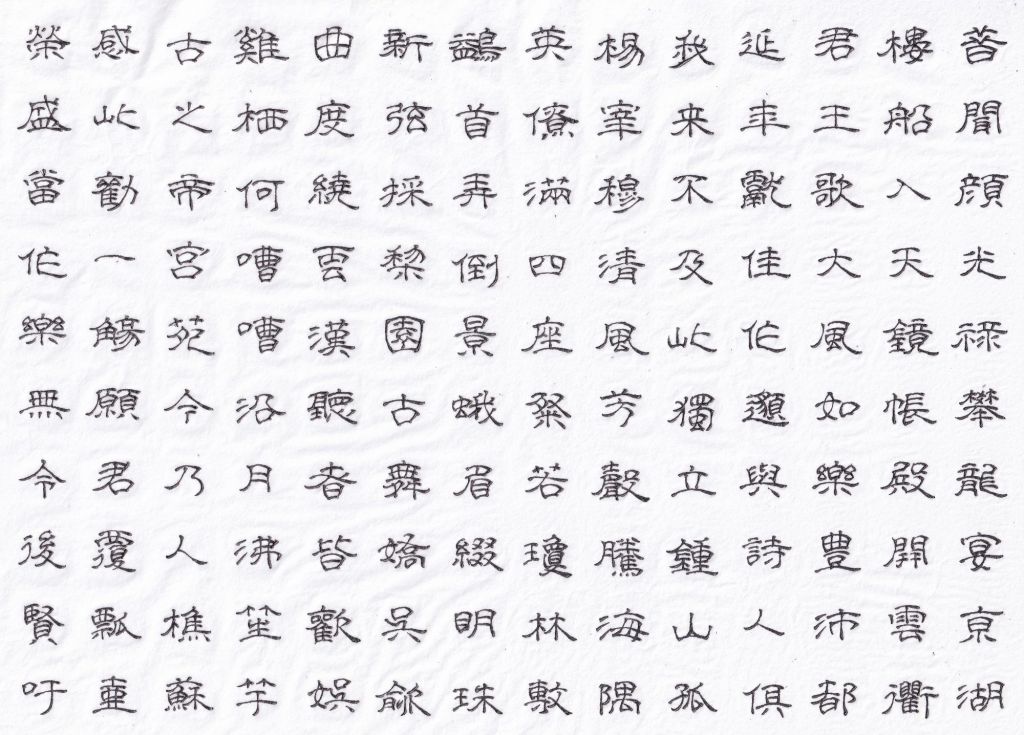 昔聞顔光禄攀龍宴京湖
樓船入天鏡帳殿開雲衢
君王歌大風如樂豊沛都
延年獻佳作邈與詩人俱
我来不及此獨立鍾山孤
楊宰穆清風芳聲騰海隅
英僚滿四座粲若瓊林敷
鷁首弄倒景蛾眉綴明珠
新弦採黎園古舞嬌吳歈
曲度繞雲漢聽者皆歡娛
雞栖何嘈嘈沿月沸笙竽
古之帝宮苑今乃人樵蘇
感此勸一觴願君覆瓢壺
榮盛當作樂無令後賢吁